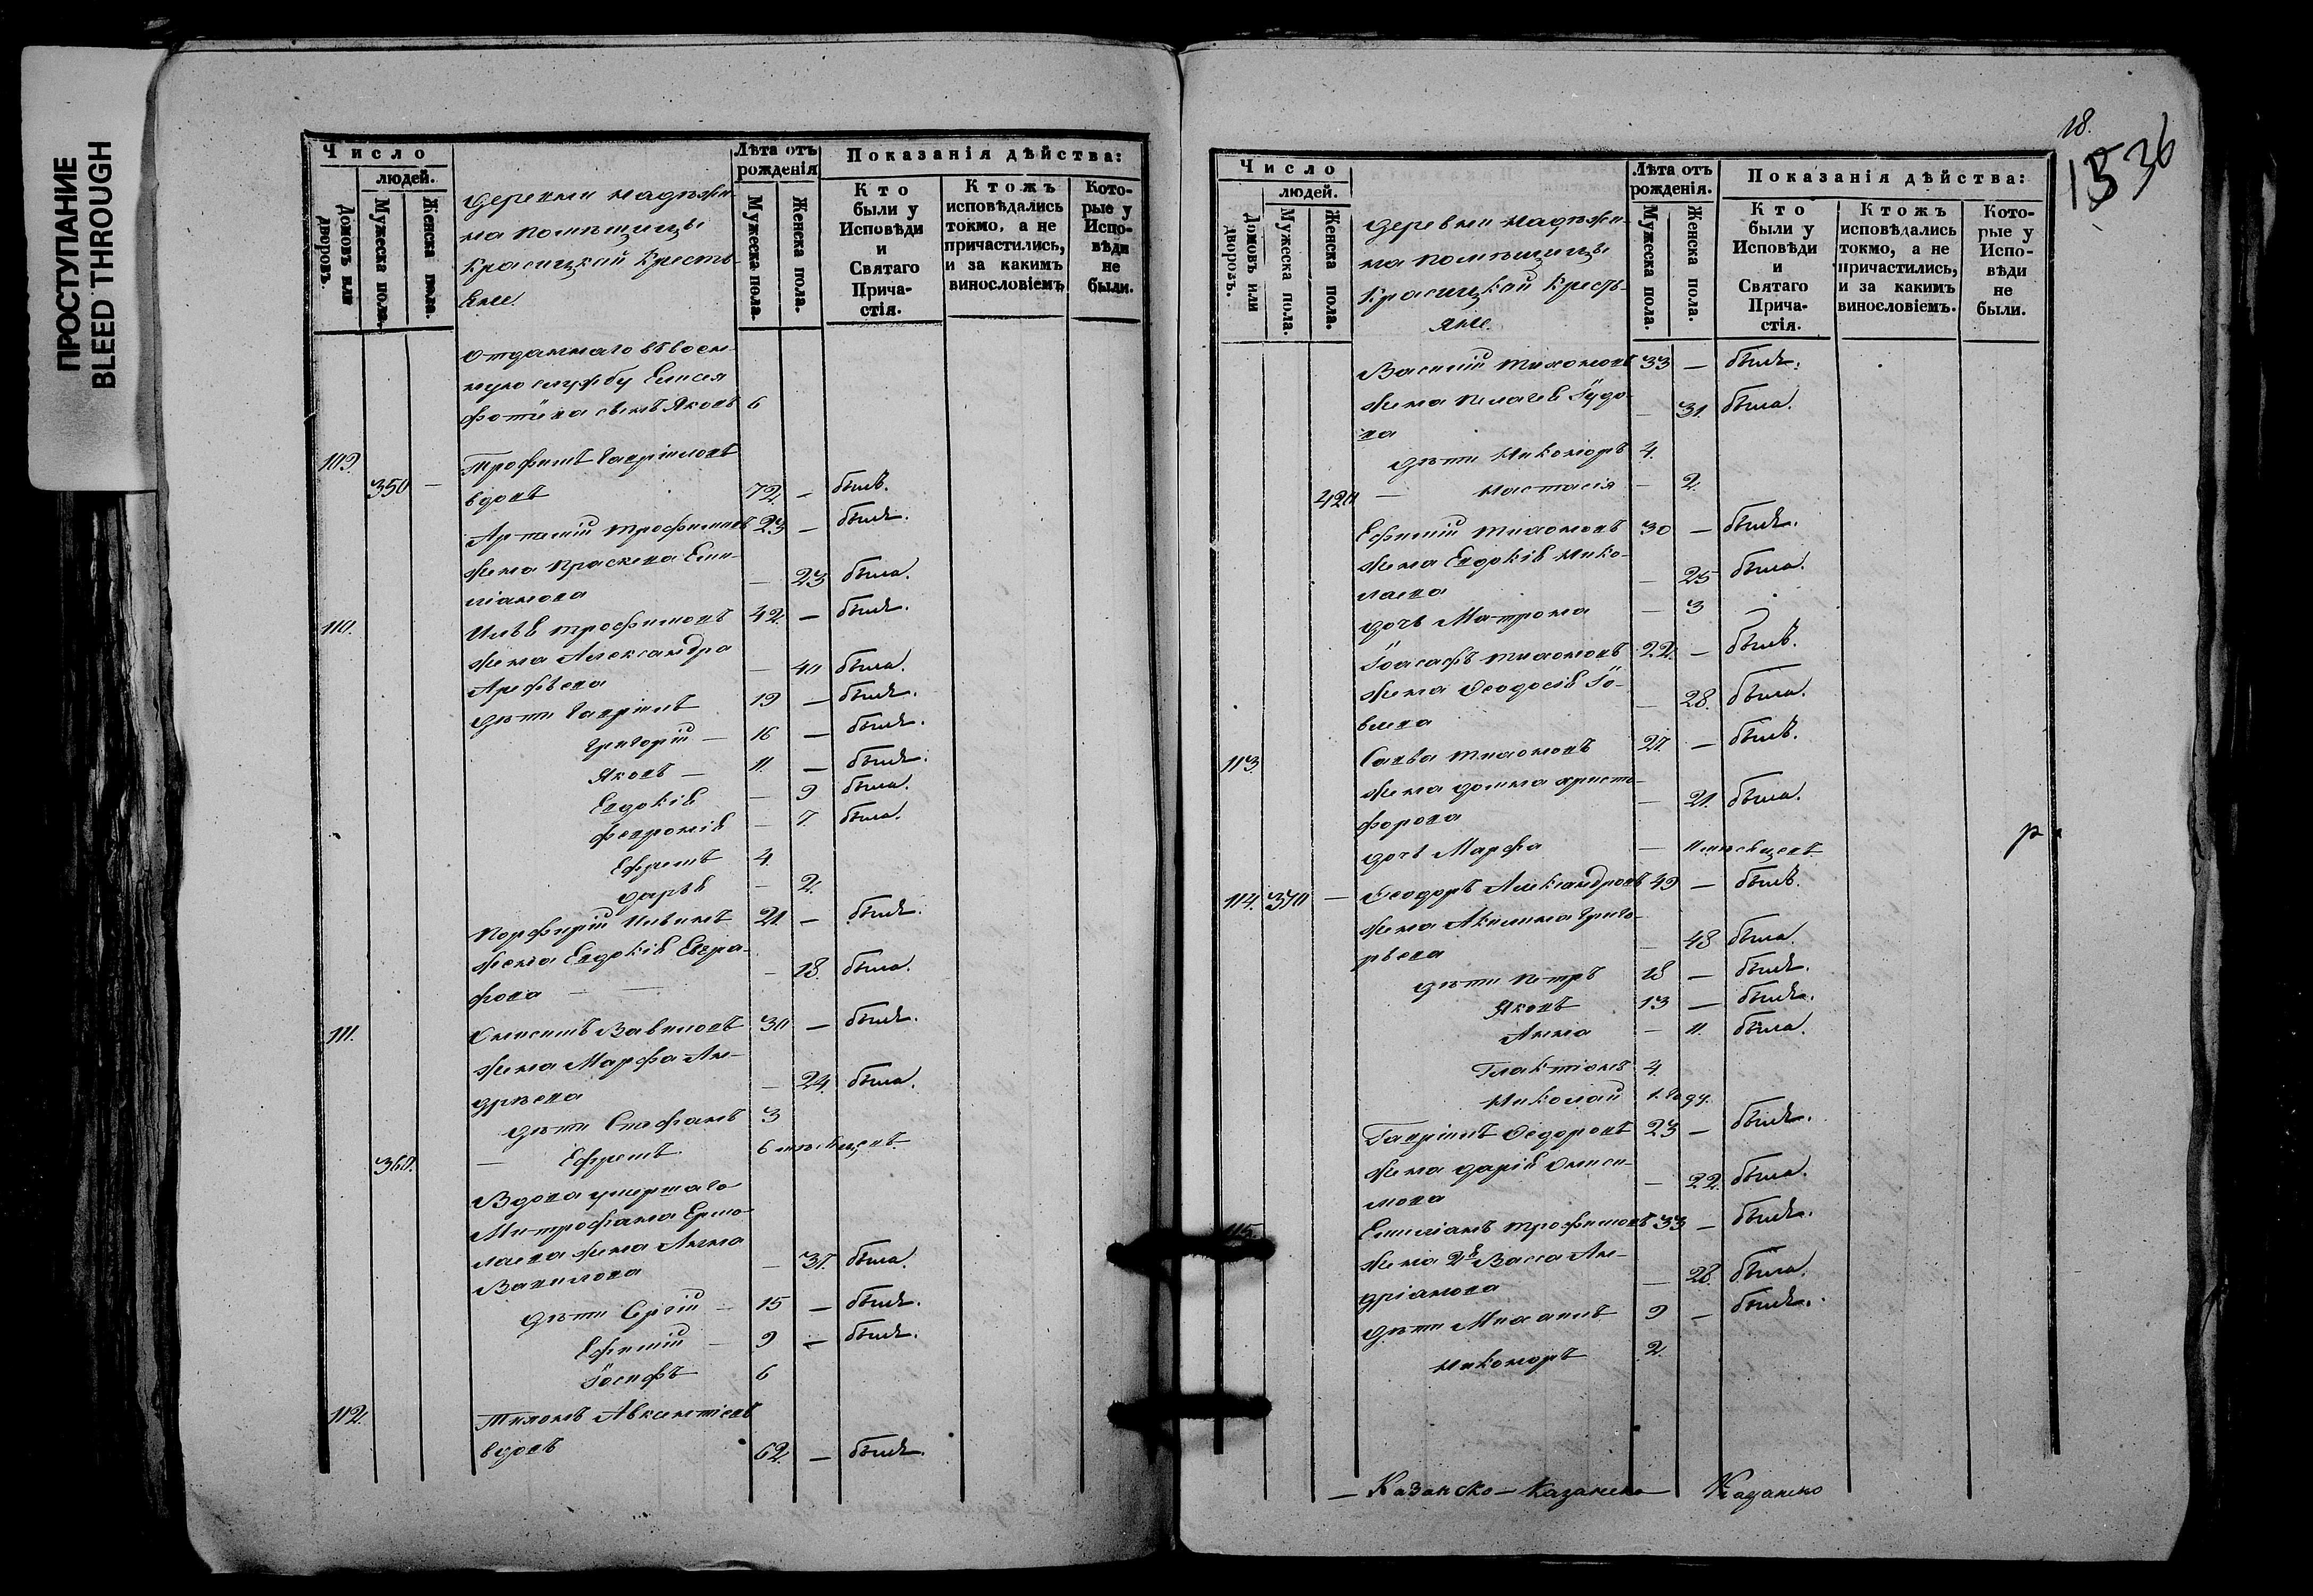 ПРОСТУПАНИЕ
BLEED THROUGH
Число
людей.
Домовъ или дворовъ.
Мужеска пола.
Женска пола.
деревни Надѣжи-
на помѣщицы
Красицкой Кресть-
яне.
Лѣта отъ рожденія
Мужеска пола.
Женска пола.
Показанія дѣйства:
Кто были у Исповѣди и Святаго Прича- стія.
Ктожъ исповѣдались токмо, а не причастились, и за какимъ винословіемъ
Кото- рые у Испо- вѣди не были.
Отданнаго въ воен-
ную службу Елисея
Фотіева сынъ Яковъ 6
109. Трофимъ Гавріиловъ
350 — вдовъ 72 — былъ.
Артемій Трофимовъ 23 — былъ.
жена Праскева Еми-
ліанова — 23 была.
110. Илья Трофимовъ 42 — былъ.
жена Александра
Арефьева — 40 была.
дѣти Гавріилъ 19 — былъ.
Григорій — 16 — былъ.
Яковъ — 11. — былъ.
Евдокія — 9 была.
Феvронія — 7. была.
Ефремъ 4.
Дарья — 2.
Порфирій Ильинъ 21 — былъ.
жена Евдокія Евгра-
фова — 18. была.
111. Онисимъ Вавиловъ 30 — былъ.
жена Марфа Ан-
дреева — 24. была.
дѣти Стефанъ 3
360. — Ефремъ 6 мѣсяцевъ.
Вдова умершаго
Митрофана Ермо-
лаева жена Анна
Вавилова — 37. была.
дѣти Сергій — 15 — былъ.
Ефимій — 9 — былъ.
Іосифъ 6
112. Тихонъ Авксентіевъ
вдовъ 62. — былъ.
18.
1536
Число
людей.
Домовъ или дворовъ.
Мужеска пола.
Женска пола.
деревни Надѣжи-
на помѣщицы
Красицкой Кресть-
яне.
Лѣта отъ рожденія.
Мужеска пола.
Женска пола.
Показанія дѣйства:
Кто были у Исповѣди и Святаго Прича- стія.
Ктожъ исповѣдались токмо, а не причастились, и за какимъ винословіемъ.
Кото- рые у Испо- вѣди не были.
Василій Тихоновъ 33 — былъ.
жена Пелагея Іудо-
ва — 31. была.
дѣти Никоноръ 4.
420 — Настасія — 2.
Ефимій Тихоновъ 30 — былъ.
жена Евдокія Нико-
лаева — 25 была.
дочь Матрона — 3
Іоасафъ Тихоновъ 22. — былъ.
жена Ѳеодосія Іо-
влева — 28. была.
113. Савва Тихоновъ 27. — былъ.
жена Домна Христо-
форова — 21. была.
дочь Марфа — 11 мѣсяцевъ.
114. 370 — Ѳеодоръ Александровъ 49 — былъ.
жена Акилина Григо-
рьева — 48 была.
дѣти Петръ 18 — былъ.
Яковъ 13 — былъ.
Анна — 11. была.
Галактіонъ 4.
Николай 1. году.
Гавріилъ Ѳедоровъ 23 — былъ.
жена Дарія Ониси-
мова — 22. была.
115. Емиліанъ Трофимовъ 33 — былъ.
жена 2я Васса Ан-
дріанова — 28. была.
дѣти Михаилъ 9 — былъ.
Никоноръ 2.
— Казанско — Казанско Казанско